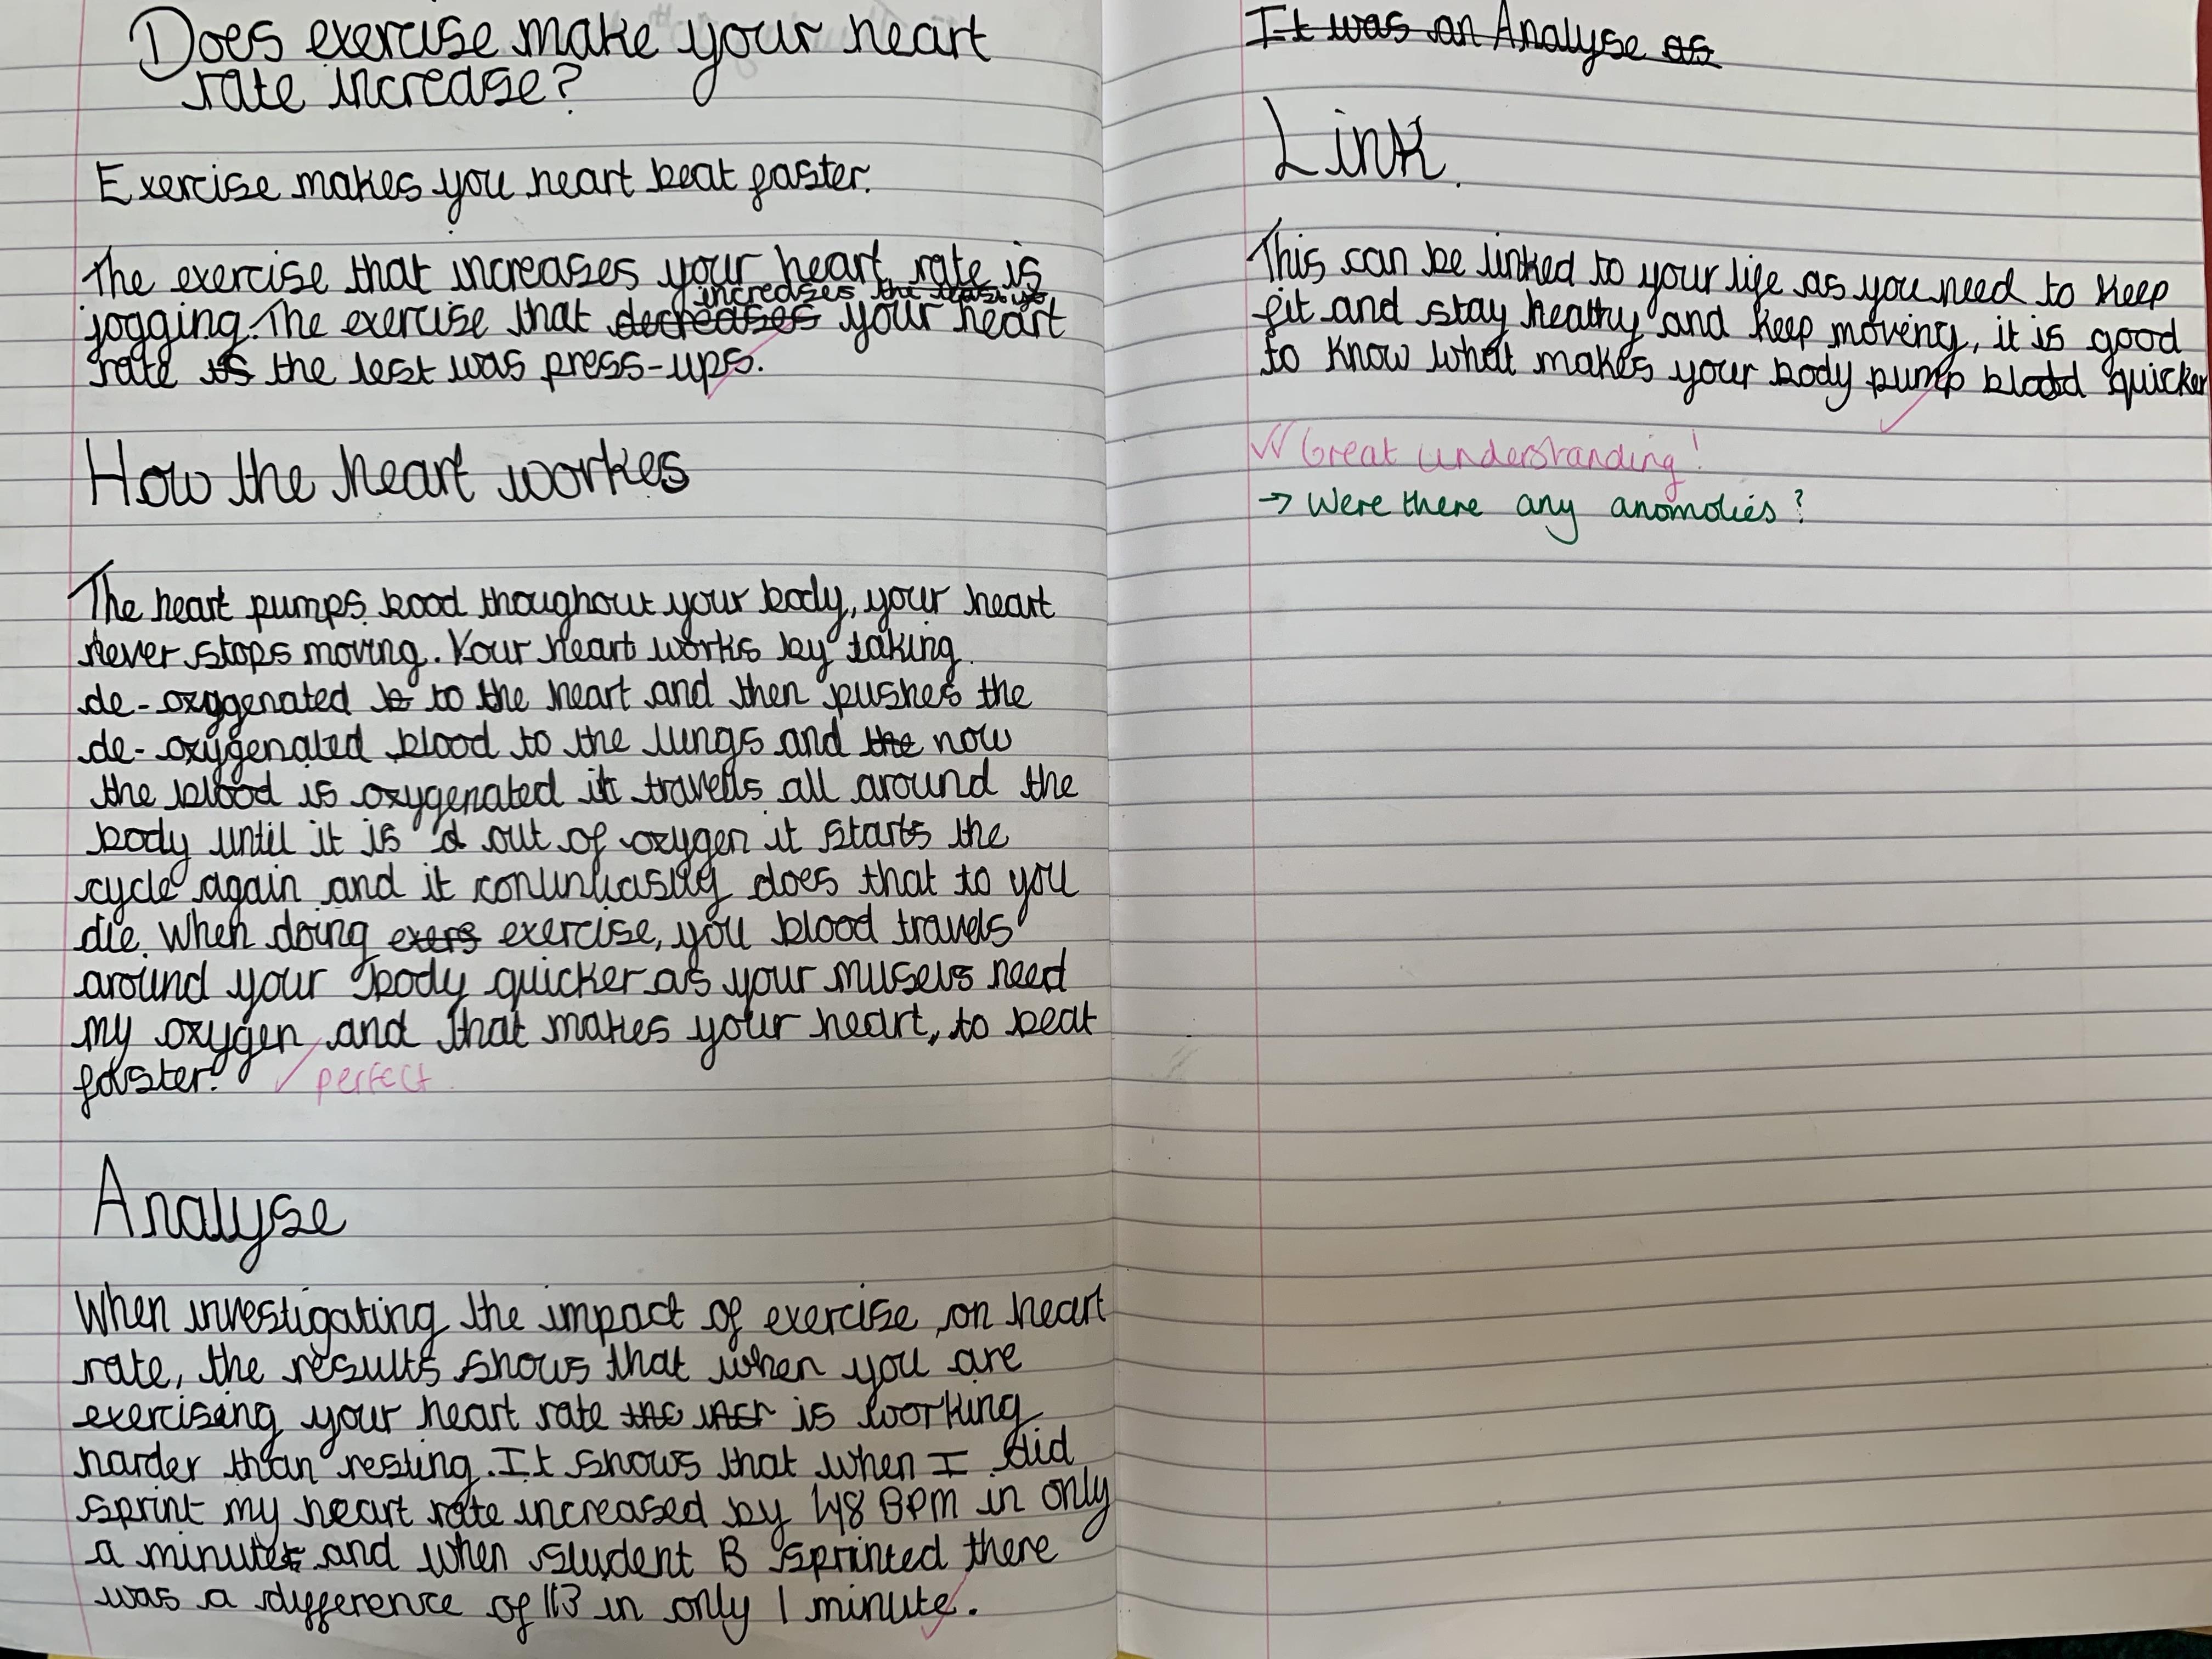 Does exercise make your heart
rate increase?
Exercise makes you heart beat faster.
The exercise that increases your heart rate is
increases the least yo
jogging. The exercise that decreases your heart
rate is the lest was press-ups.
How the heart workes
The heart pumps bood thoughout your body, your heart
never stops moving. Your heart works by taking
de-oxygenated b to the heart and then pushes the
de-oxygenated blood to the lungs and the now
the blood is oxygenated it travells all around the
body until it is d out of oxygen it starts the
cycle again and it does that to you
die. When doing exers exercise, you blood travels
around your body quicker as your musels need
my oxygen and that makes your heart, to beat
faster.
perfect
Analyse
When investigating the impact of exercise on heart
rate, the results shows that when you are
exercising your heart rate the is working
harder than resting. It shows that when I did
sprint my heart rate increased by 48 BPM in only
a minute and when student B sprinted there
was a difference of 113 in only 1 minute.
It was an Analyse as
Link.
This can be linked to your life as you need to keep
fit and stay healthy and keep moving, it is good
to know what makes your body pump blood quicker
Great understanding!
→ Were there any anomolies?